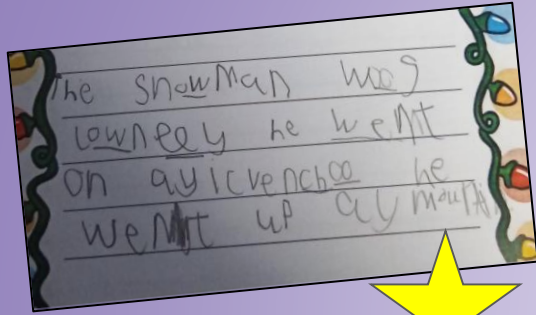 The snowman woos
lowneey he went
on ayicvenchoo he
went up ay mountin